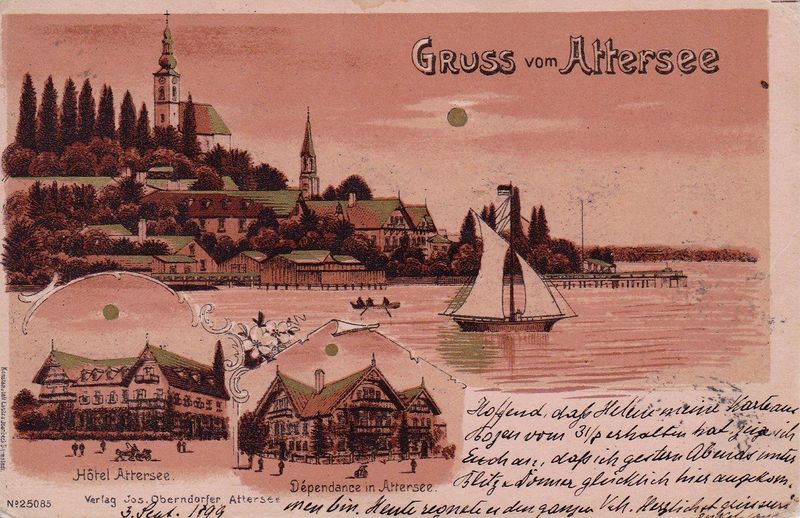 GRUSS vom Attersee
Hoffend, daß Helene meine Karte aus
Bozen vom 31/8 erhalten hat, zeige ich
Euch an, daß ich gestern Abends unter
Blitz u Donner glücklich hier angekom
men bin. Heute regnete es den ganzen Herzlichst grüsst
Hôtel Attersee.
Dépendance in Attersee.
No 25085
Verlag Jos. Oberndorfer Attersee
3. Sept. 1899